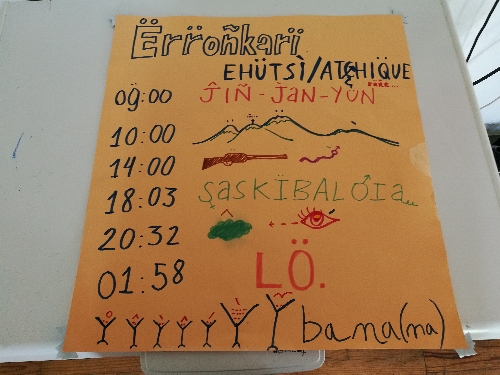 Ërroñkarï
EHÜTSÌ/ATCHIQUE
09:00 ĴIÑ-JAN-YÖN
10:00
14:00
18:03 ŞASKÏBALOIa
20:32
01:58 LÖ.
bana(na)